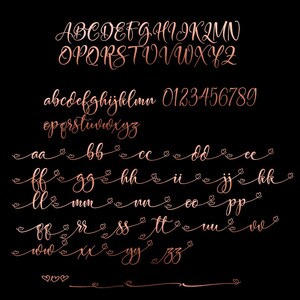 ABCDEFGHIJKLMN
OPQRSTUVWXYZ
abcdefghijklmn 0123456789
opqrstuvwxyz
aa bb cc dd ee
ff gg hh ii jj kk
ll mm nn oo pp
qq rr ss tt uu vv
ww xx yy zz